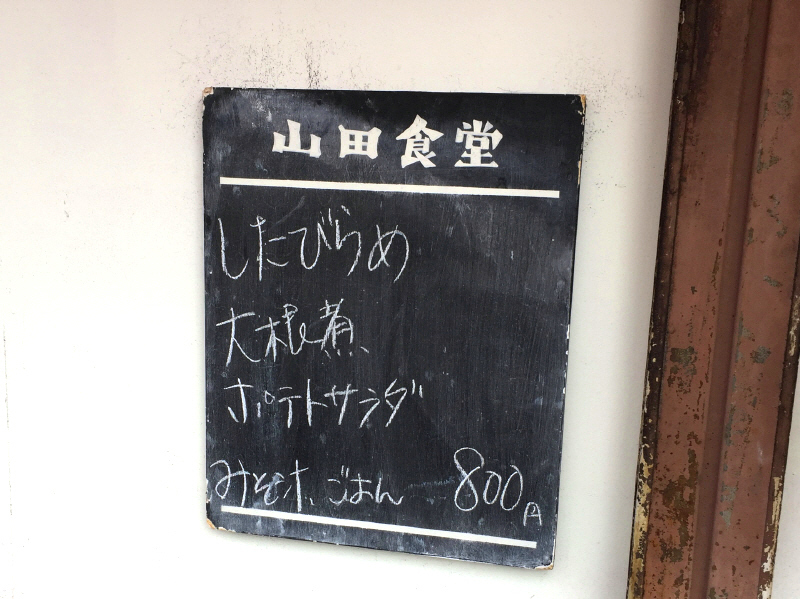 山田食堂
したびらめ
大根煮、
ポテトサラダ
みそ汁、ごはん 800円